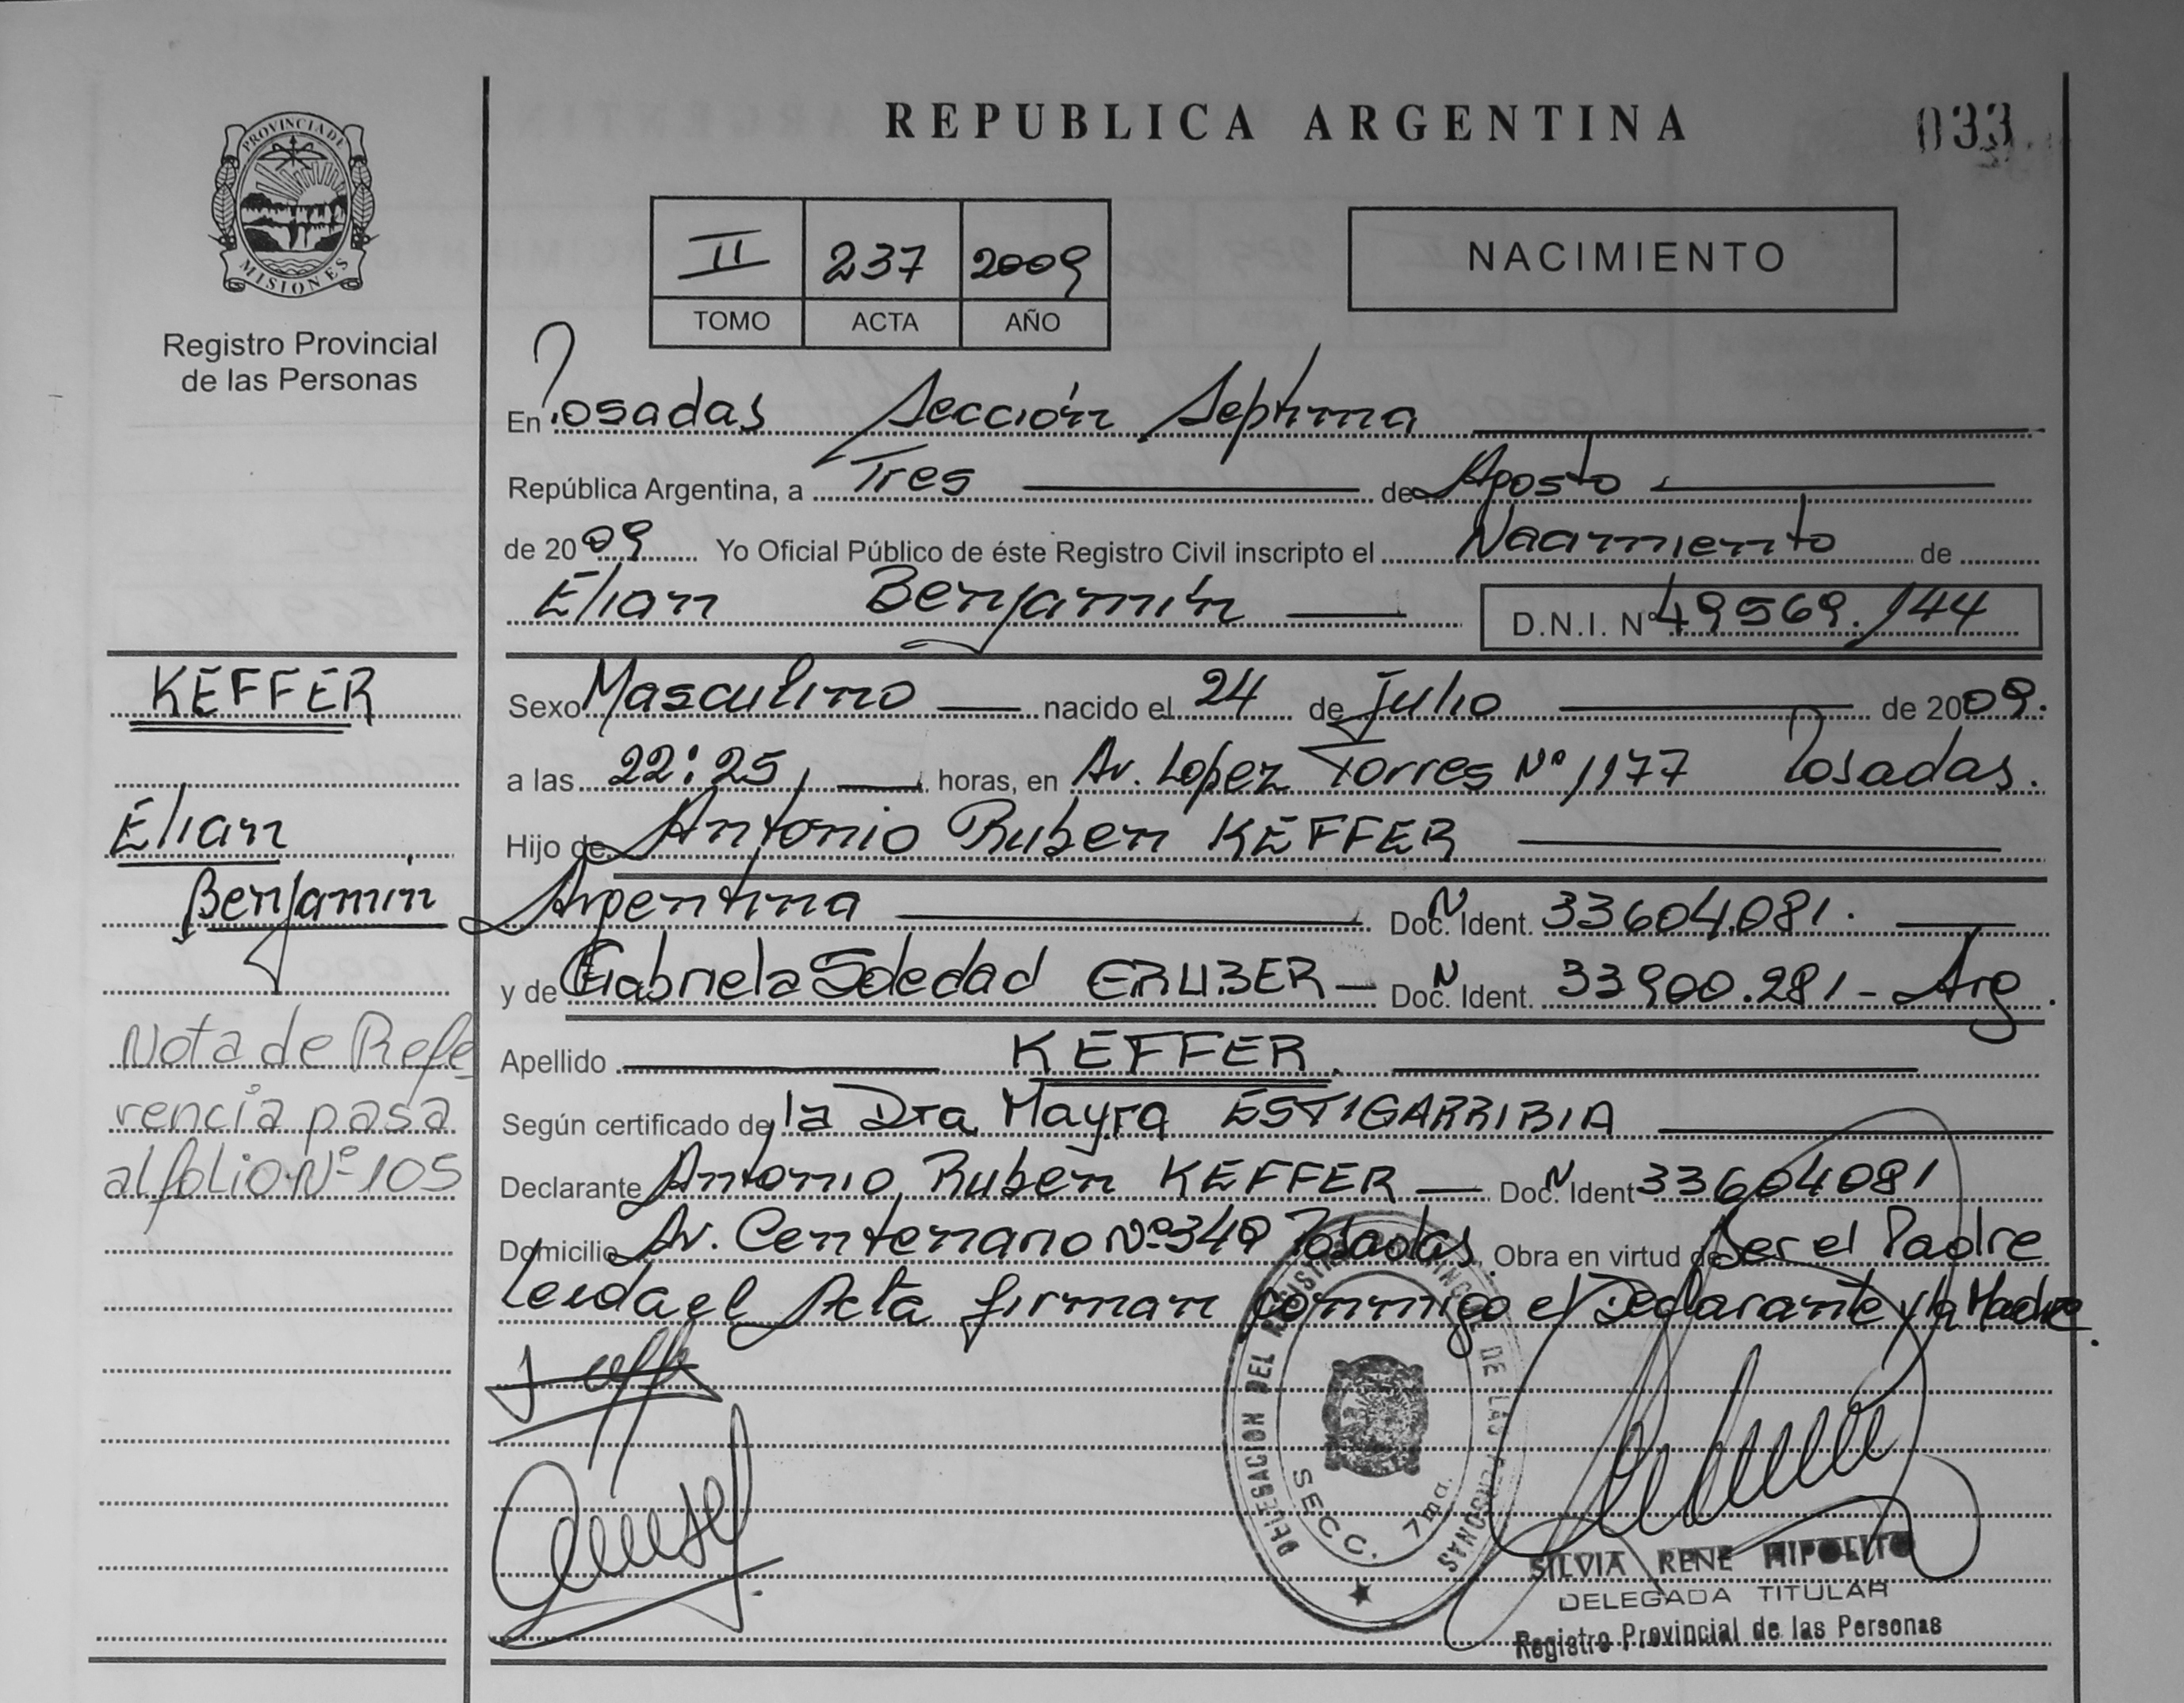 REPUBLICA ARGENTINA
033
PROVINCIA DE
MISIONES
Registro Provincial
de las Personas
II 237 2009
TOMO ACTA AÑO
NACIMIENTO
En Posadas Sección Septima
República Argentina, a Tres de Agosto
de 2009 Yo Oficial Público de éste Registro Civil inscripto el Nacimiento de
Elian Benjamín D.N.I. Nº 49569.144
KEFFER
Elian
Benjamín
Nota de Refe
rencia pasa
al folio Nº 105
Sexo Masculino nacido el 24 de Julio de 2009.
a las 22:25, horas, en Av. Lopez Torres Nº 1177 Posadas.
Hijo de Antonio Ruben KEFFER
Argentina Doc. N Ident. 33604.081.
y de Gabriela Soledad GRUBER Doc. N Ident. 33900.281 - Arg.
Apellido KEFFER.
Según certificado de la Dra Mayra ESTIGARRIBIA
Declarante Antonio Ruben KEFFER Doc. N Ident 33604081
Domicilio Av. Centenario Nº 349 Posadas. Obra en virtud de Ser el Padre
Leida el Acta firman conmigo el Declarante y la Madre.
DELEGACION DEL REGISTRO PROVINCIAL DE LAS PERSONAS
SECC. 7ma.
SILVIA RENE HIPOLITO
DELEGADA TITULAR
Registro Provincial de las Personas